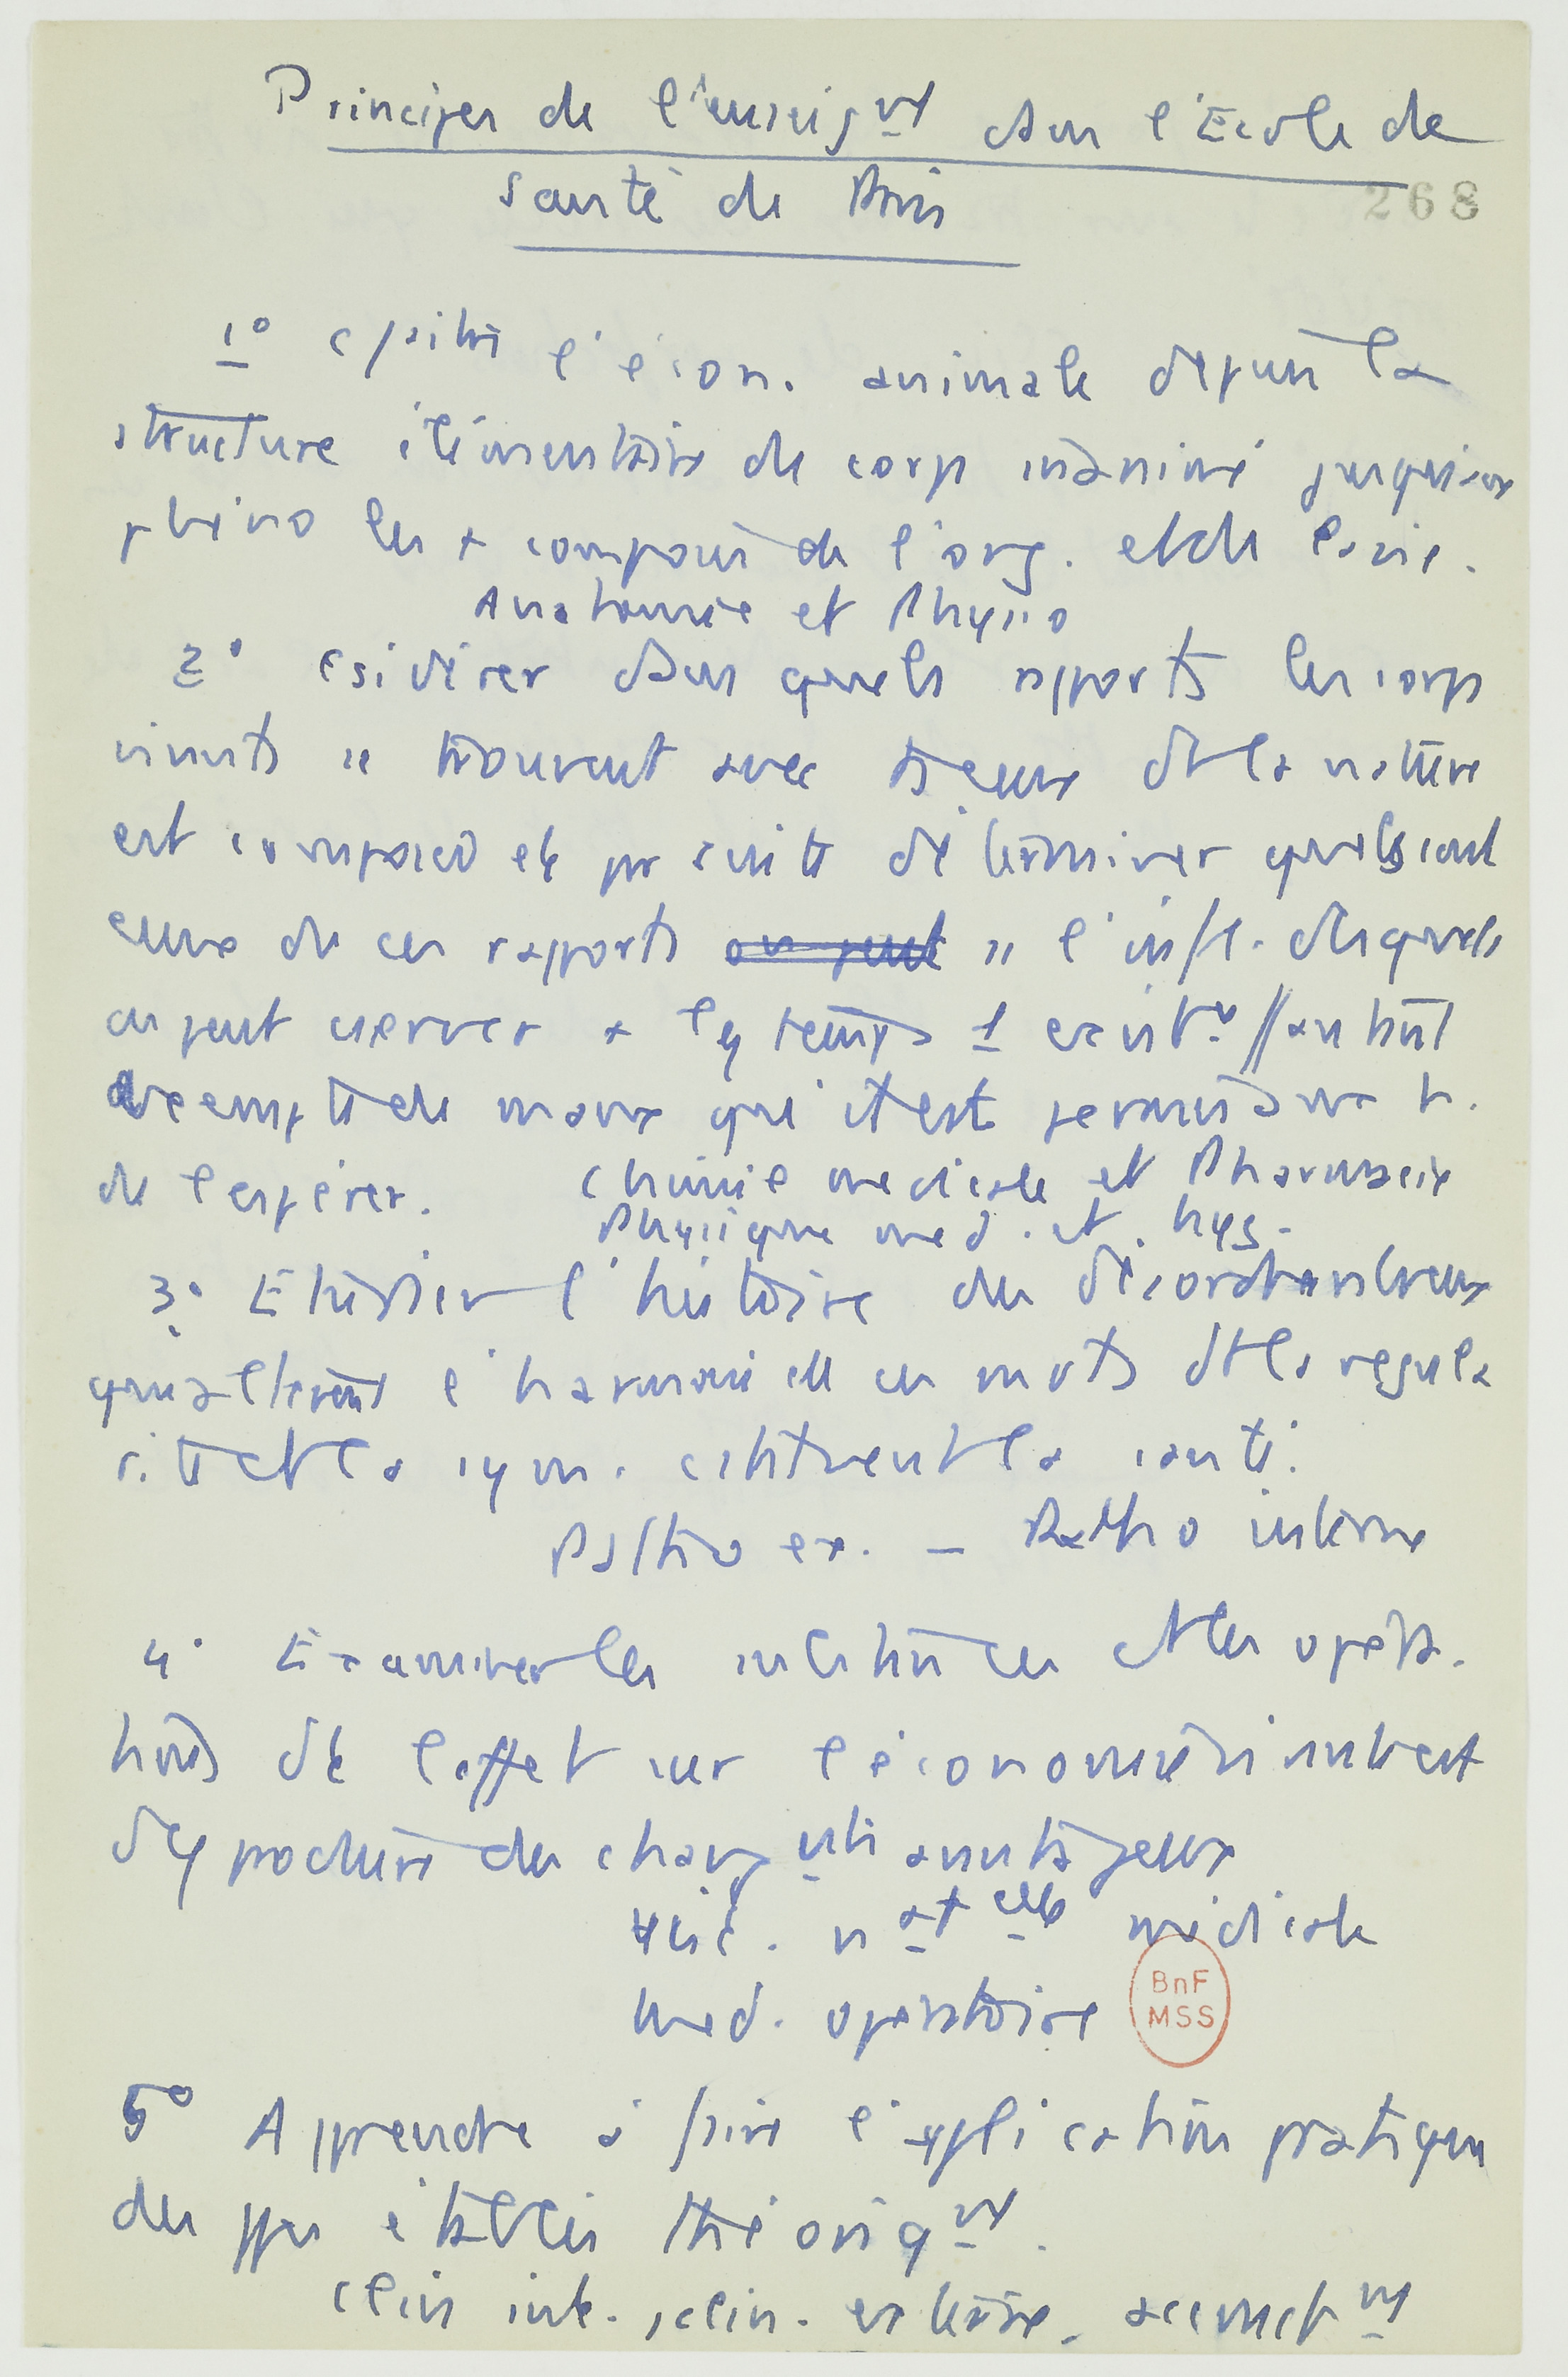 Principes de l'enseignt dans l'École de
santé de Paris
268
1° c/ l'écon. animale depuis la
structure élémentaire du corps inanimé jusqu'aux
phéno les + composés de l'org. et de la vie.
Anatomie et Physio
2° csidérer dans quels rapports les corps
vivants se trouvent avec ts ceux dt la nature
est composée et pr suite déterminer quels sont
ceux de ces rapports on peut ss l'infl. desquels
on peut
exempte de maux qu'il est permis à un h.
de l'espérer. Chimie médicale et Pharmacie
Physique med. et hyg.
3° Etudier l'histoire des désordres
qui altèrent l'harmonie de ces mvts dt la régula
rité et la sym. cstituent la santé.
Patho ex. – Patho interne
4° Examiner les substances et les opéra.
tions dt l'effet sur l'économie animale est
d'y produire des changts avantageux
Hist. natelle médicale
Med. opératoire
BnF
MSS
5° Apprendre à faire l'application pratique
des ppes établis théoriqt.
clin int. , clin. externe, acccncht